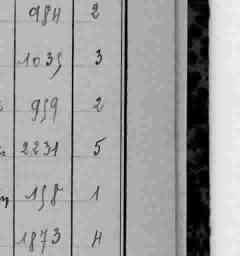 984 2
1035 3
959 2
2231 5
158 1
1873 4